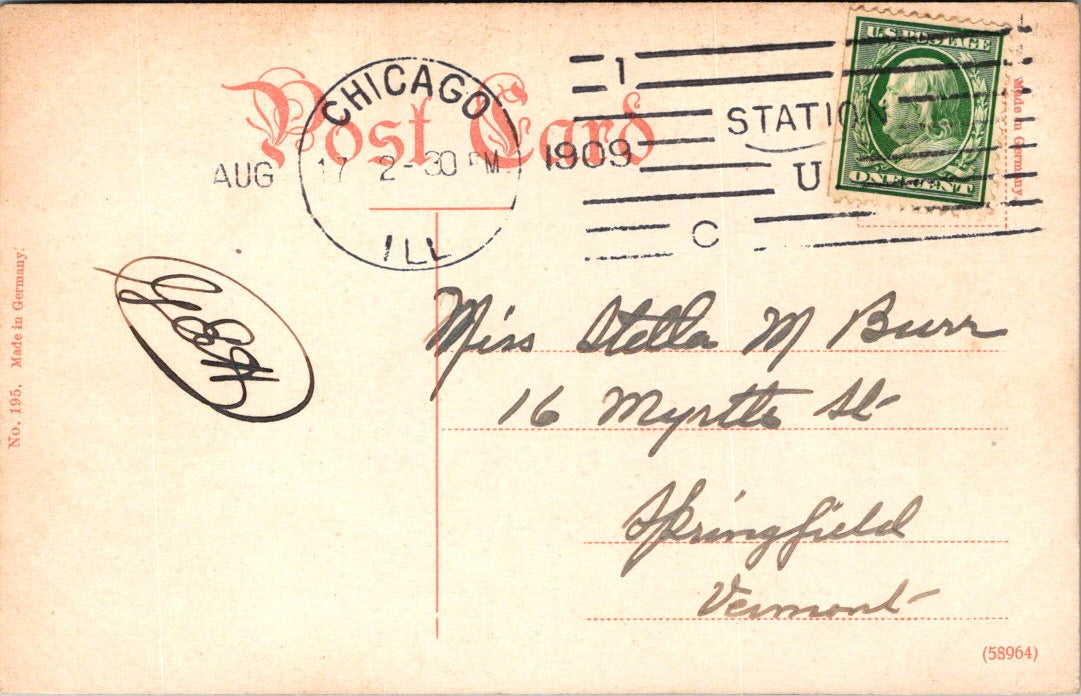 Post Card
CHICAGO
AUG 17 2-30 PM 1909
ILL
1
STATION
U
C
U.S. POSTAGE
ONE CENT
Made in Germany
No. 195. Made in Germany
Miss Stella M Burr
16 Myrtle St
Springfield
Vermont
(58964)